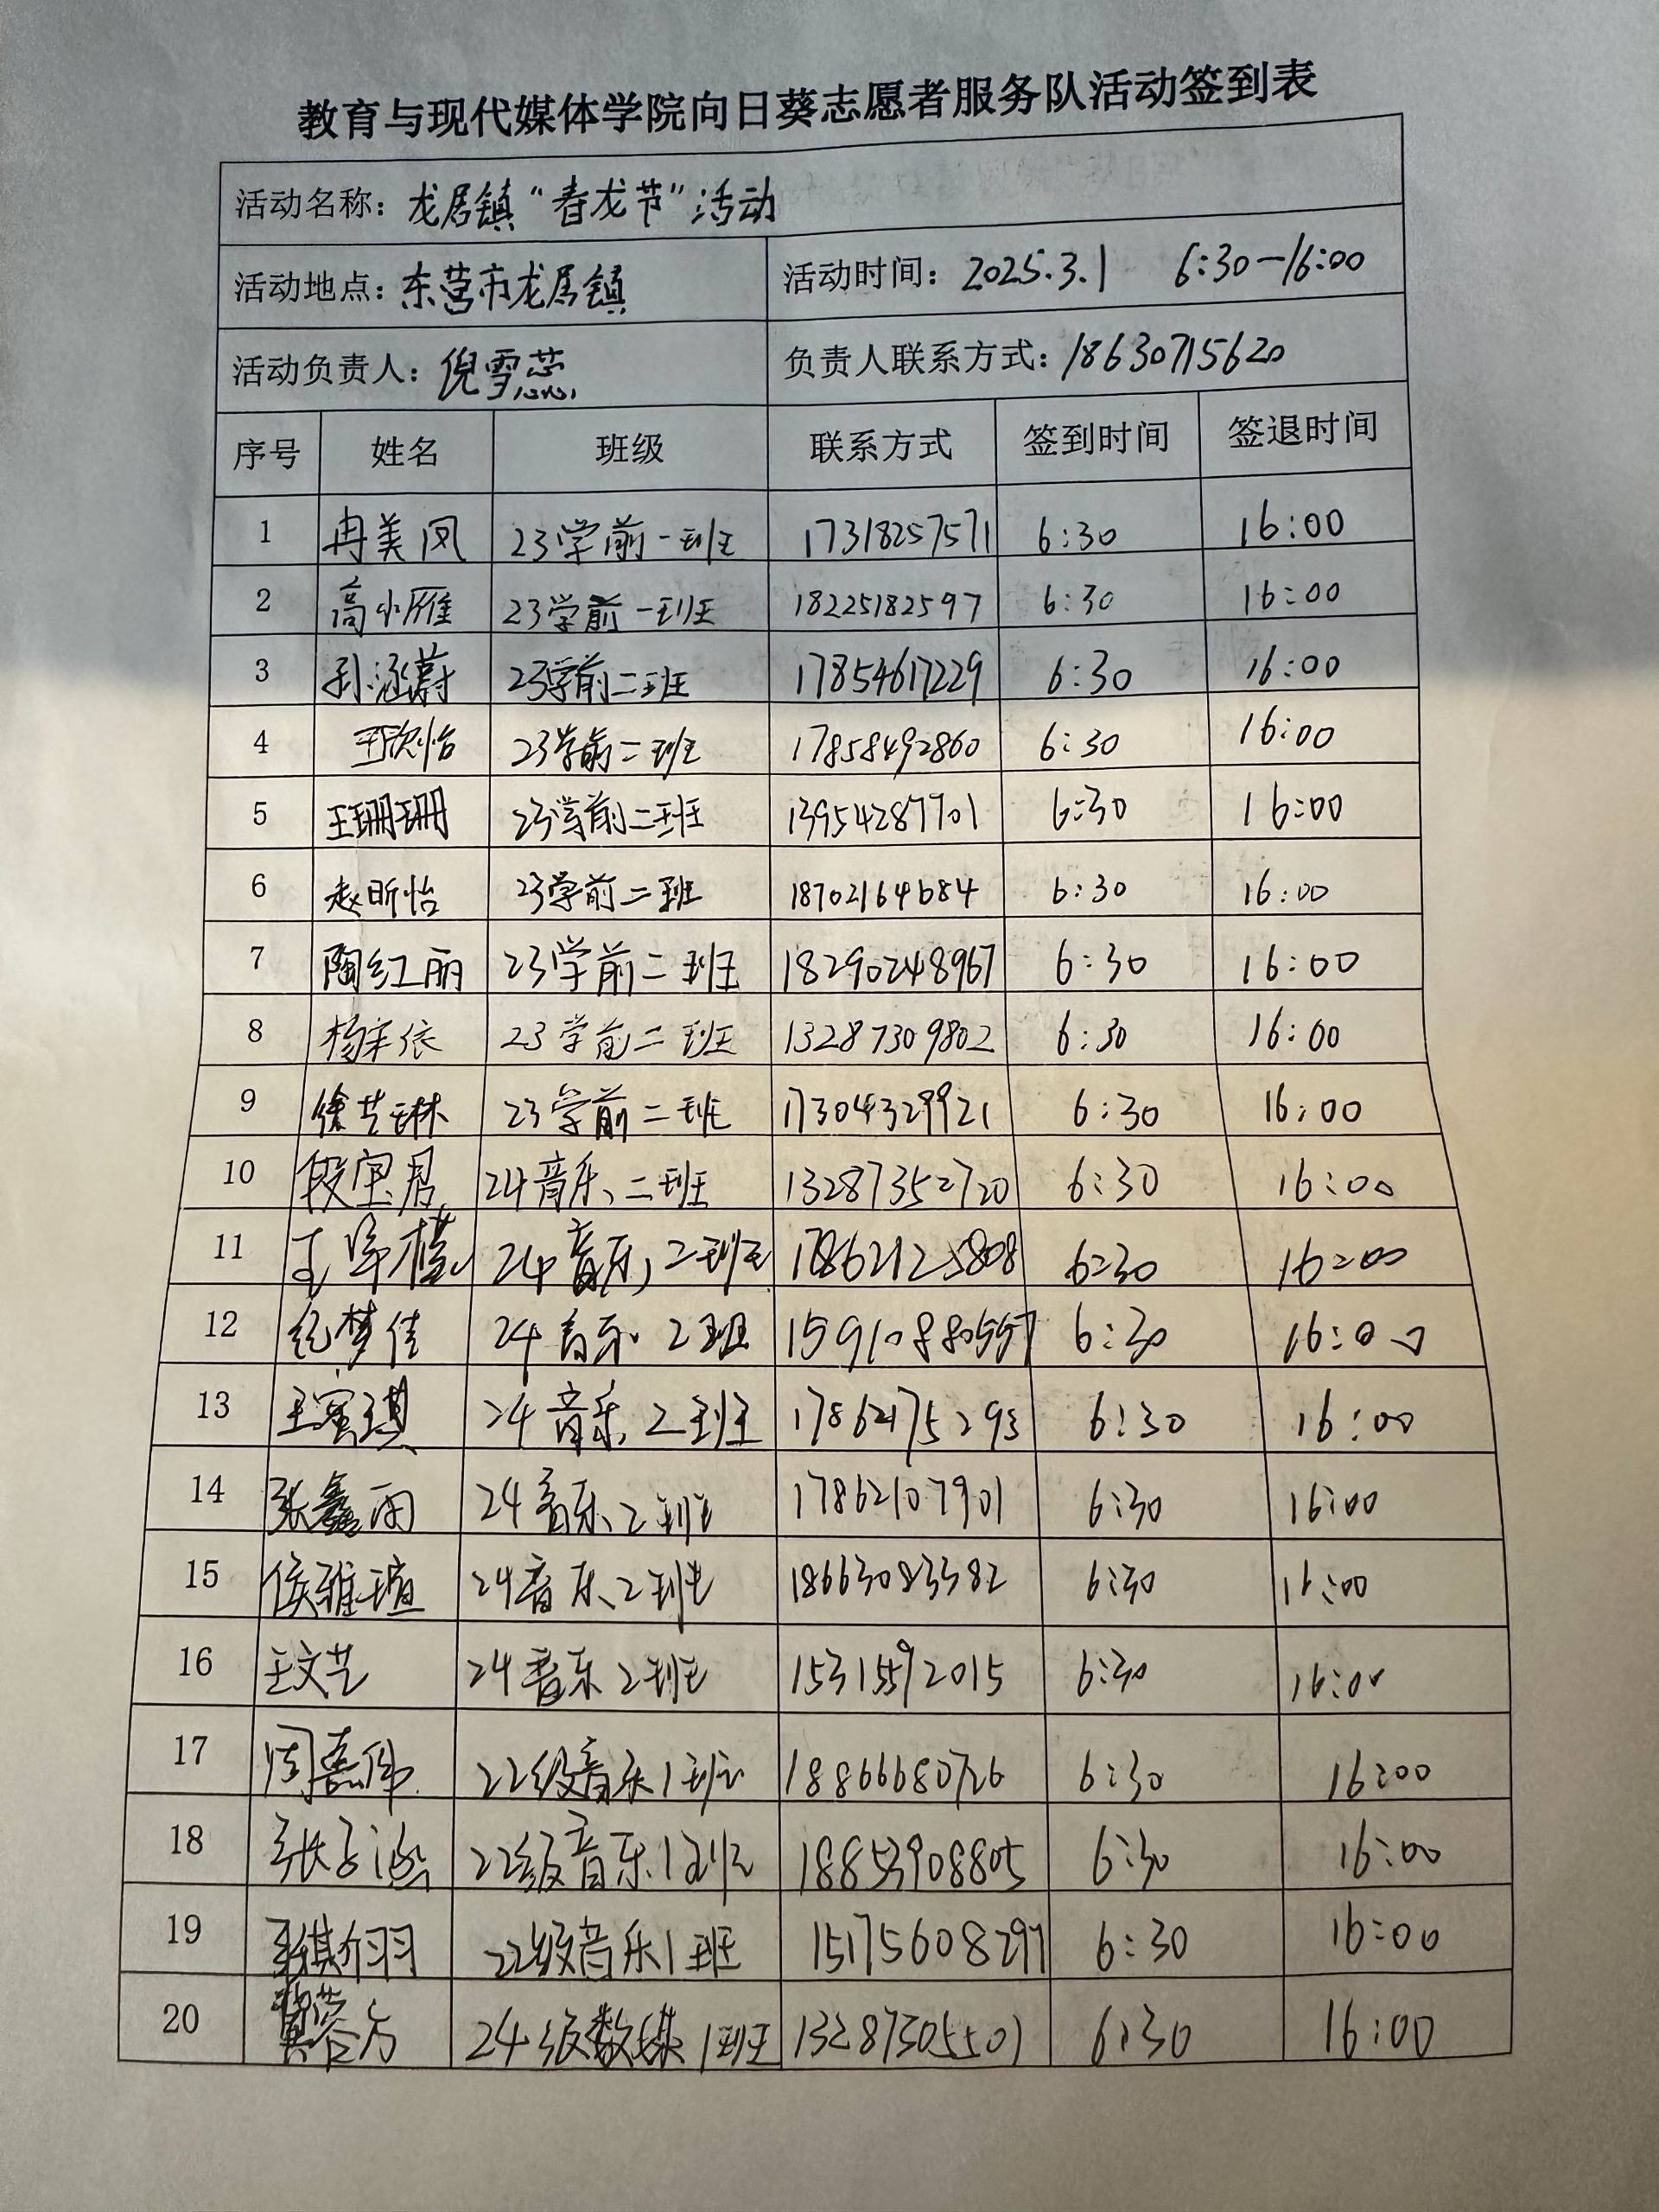 教育与现代媒体学院向日葵志愿者服务队活动签到表
活动名称：龙居镇“春龙节”活动
活动地点：东营市龙居镇 活动时间：2025.3.1 6:30—16:00
活动负责人：倪雪蕊 负责人联系方式：18630715620
序号 姓名 班级 联系方式 签到时间 签退时间
1 冉美凤 23学前一班 17318257571 6:30 16:00
2 高小雁 23学前一班 18225182597 6:30 16:00
3 孙涵蔚 23学前二班 17854617229 6:30 16:00
4 王欣怡 23学前二班 17858492860 6:30 16:00
5 王珊珊 23学前二班 13954287701 6:30 16:00
6 赵昕怡 23学前二班 18702164684 6:30 16:00
7 陶红丽 23学前二班 18290248967 6:30 16:00
8 杨辛依 23学前二班 13287309802 6:30 16:00
9 徐艺琳 23学前二班 17304329921 6:30 16:00
10 段宝君 24音乐二班 13287352720 6:30 16:00
11 24音乐2班 17862125808 6:30 16:00
12 纪梦佳 24音乐2班 15910880557 6:30 16:00
13 王蜜琪 24音乐2班 17862175293 6:30 16:00
14 张鑫雨 24音乐2班 17862107901 6:30 16:00
15 侯雅瑄 24音乐2班 18663083382 6:30 16:00
16 王文艺 24音乐2班 15315592015 6:30 16:00
17 周嘉伟 22级音乐1班 18866680726 6:30 16:00
18 张子涵 22级音乐1班 18853908805 6:30 16:00
19 22级音乐1班 15175608297 6:30 16:00
20 24级数媒1班 13287305501 6:30 16:00